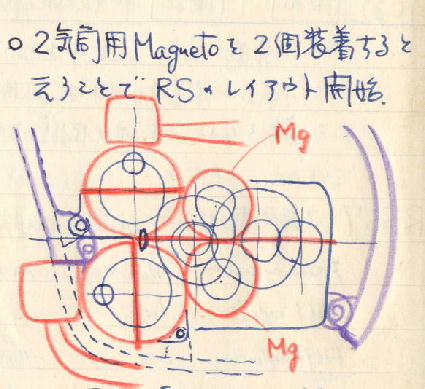 ○ 2気筒用Magnetoを2個装着すると
云うことで RSのレイアウト開始.
Mg
Mg